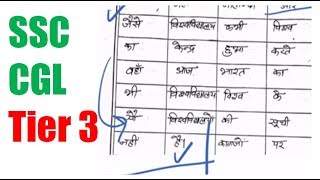 SSC
CGL
Tier 3
जैसे विश्वविद्यालय कभी विश्व
का केन्द्र हुआ करते
वहाँ आज भारत का
भी विश्वविद्यालय विश्व के
विश्वविद्यालयों की सूची
नहीं है। कागजों पर